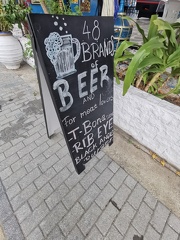 48
BRAND
of
BEER
AND
For meat lovers
T-Bone
RIB EYE
BLACK AND